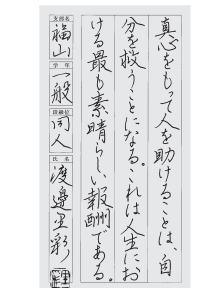 真心をもって人を助けることは、自
分を救うことになる。これは人生にお
ける最も素晴らしい報酬である。
支部名
福山
学年
一般
段級位
同人
氏名
渡邉里彩